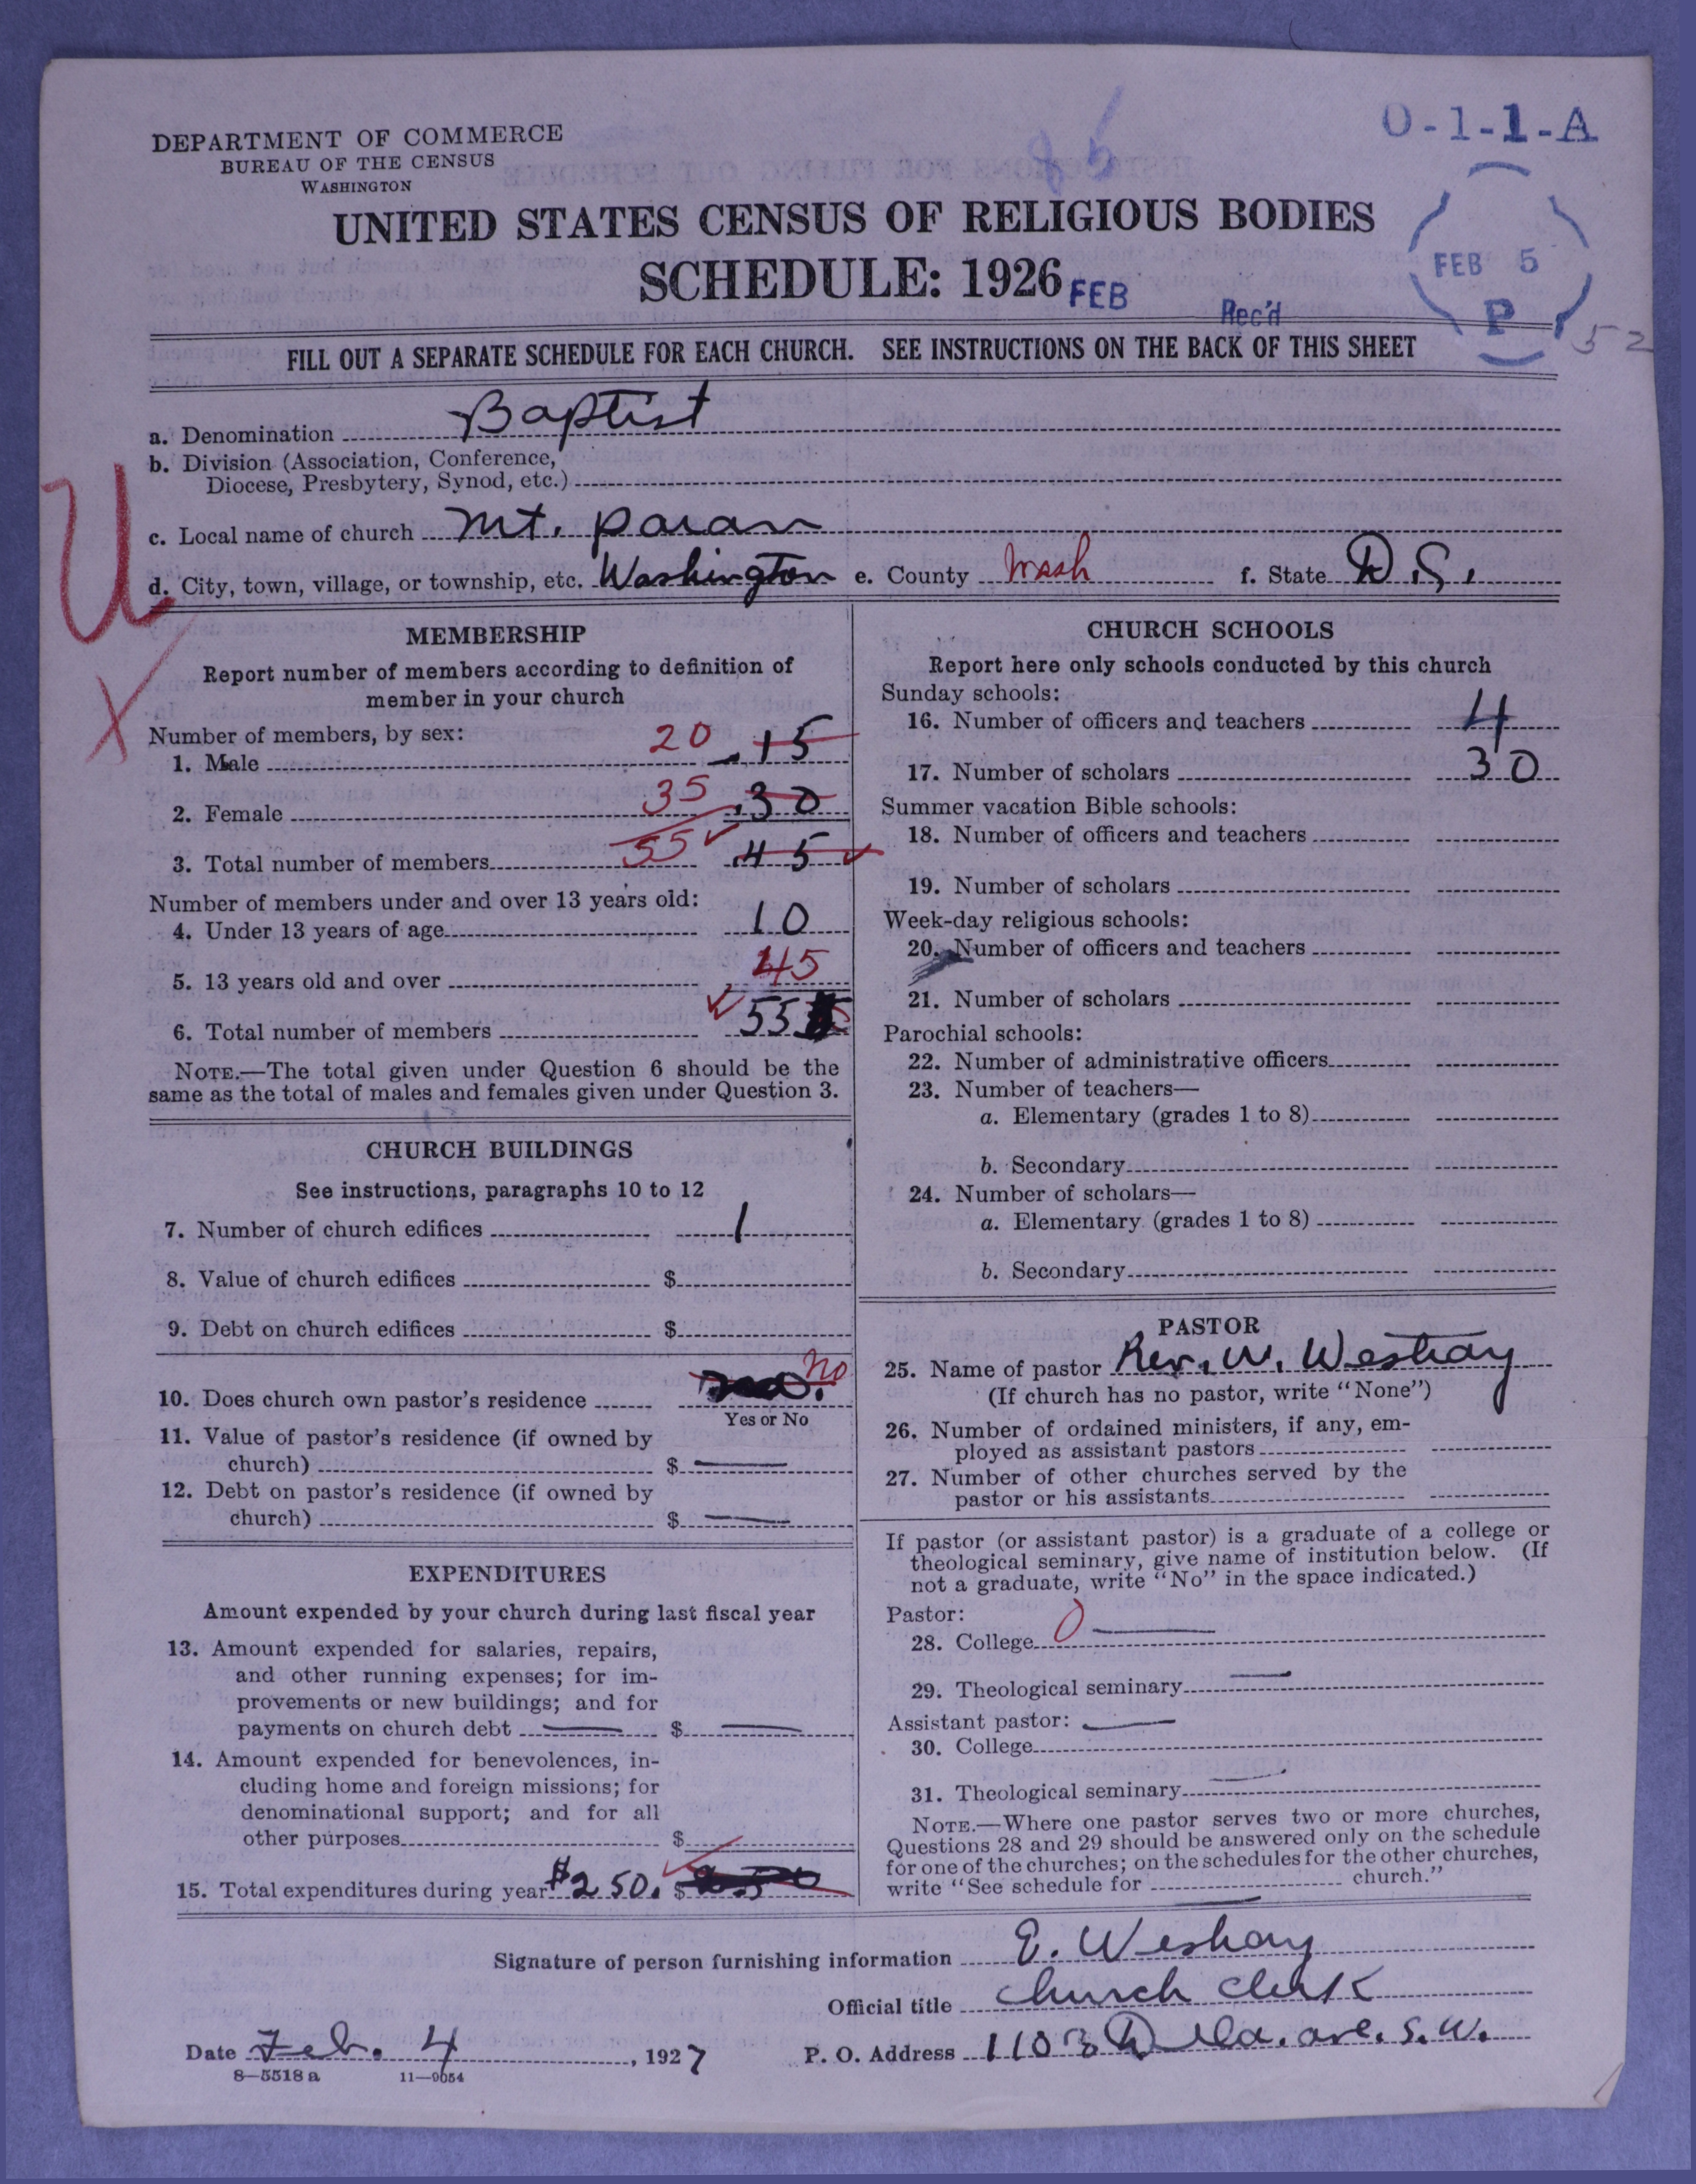 O-1-1-A
DEPARTMENT OF COMMERCE
BUREAU OF THE CENSUS
WASHINGTON
UNITED STATES CENSUS OF RELIGIOUS BODIES
SCHEDULE: 1926
FEB Rec'd
FEB 5
P
52
FILL OUT A SEPARATE SCHEDULE FOR EACH CHURCH. SEE INSTRUCTIONS ON THE BACK OF THIS SHEET
a. Denomination Baptist
b. Division (Association, Conference,
Diocese, Presbytery, Synod, etc.)
c. Local name of church Mt. Paran
d. City, town, village, or township, etc. Washington e. County Wash f. State D.C.
U
X
MEMBERSHIP
Report number of members according to definition of
member in your church
Number of members, by sex:
1. Male 20 15
2. Female 35 30
3. Total number of members 55 45
Number of members under and over 13 years old:
4. Under 13 years of age 10
5. 13 years old and over 45
6. Total number of members 55
NOTE.—The total given under Question 6 should be the
same as the total of males and females given under Question 3.
CHURCH BUILDINGS
See instructions, paragraphs 10 to 12
7. Number of church edifices 1
8. Value of church edifices $
9. Debt on church edifices $
10. Does church own pastor's residence no
Yes or No
11. Value of pastor's residence (if owned by
church) $ —
12. Debt on pastor's residence (if owned by
church) $ —
EXPENDITURES
Amount expended by your church during last fiscal year
13. Amount expended for salaries, repairs,
and other running expenses; for im-
provements or new buildings; and for
payments on church debt — $ —
14. Amount expended for benevolences, in-
cluding home and foreign missions; for
denominational support; and for all
other purposes $
15. Total expenditures during year $250. $
CHURCH SCHOOLS
Report here only schools conducted by this church
Sunday schools:
16. Number of officers and teachers 4
17. Number of scholars 30
Summer vacation Bible schools:
18. Number of officers and teachers
19. Number of scholars
Week-day religious schools:
20. Number of officers and teachers
21. Number of scholars
Parochial schools:
22. Number of administrative officers
23. Number of teachers—
a. Elementary (grades 1 to 8)
b. Secondary
24. Number of scholars—
a. Elementary (grades 1 to 8)
b. Secondary
PASTOR
25. Name of pastor Rev. W. Westray
(If church has no pastor, write "None")
26. Number of ordained ministers, if any, em-
ployed as assistant pastors
27. Number of other churches served by the
pastor or his assistants
If pastor (or assistant pastor) is a graduate of a college or
theological seminary, give name of institution below. (If
not a graduate, write "No" in the space indicated.)
Pastor:
28. College 0 —
29. Theological seminary —
Assistant pastor: —
30. College
31. Theological seminary —
NOTE.—Where one pastor serves two or more churches,
Questions 28 and 29 should be answered only on the schedule
for one of the churches; on the schedules for the other churches,
write "See schedule for church."
Signature of person furnishing information E. Westray
Official title Church Clerk
Date Feb. 4, 1927 P. O. Address 1103 Dela. ave. S.W.
8—5518 a 11—9054